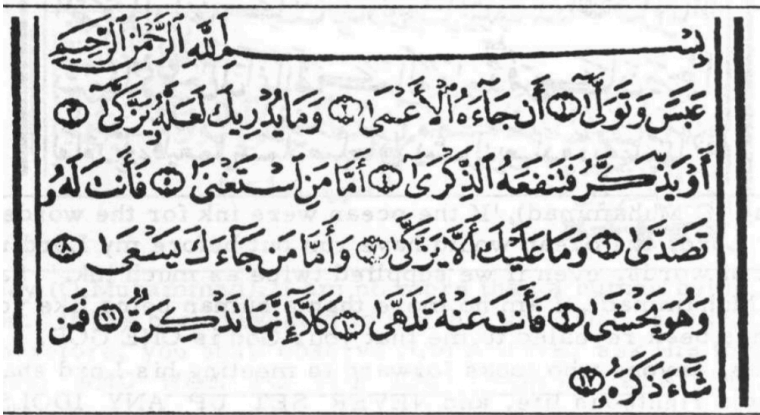 بِسْمِ اللَّهِ الرَّحْمَٰنِ الرَّحِيمِ
عَبَسَ وَتَوَلَّىٰٓ ۝١ أَن جَآءَهُ الْأَعْمَىٰ ۝٢ وَمَا يُدْرِيكَ لَعَلَّهُۥ يَزَّكَّىٰٓ ۝٣
أَوْ يَذَّكَّرُ فَتَنفَعَهُ الذِّكْرَىٰٓ ۝٤ أَمَّا مَنِ اسْتَغْنَىٰ ۝٥ فَأَنتَ لَهُۥ
تَصَدَّىٰ ۝٦ وَمَا عَلَيْكَ أَلَّا يَزَّكَّىٰ ۝٧ وَأَمَّا مَن جَآءَكَ يَسْعَىٰ ۝٨
وَهُوَ يَخْشَىٰ ۝٩ فَأَنتَ عَنْهُ تَلَهَّىٰ ۝١٠ كَلَّآ إِنَّهَا تَذْكِرَةٌ ۝١١ فَمَن
شَآءَ ذَكَرَهُۥ ۝١٢